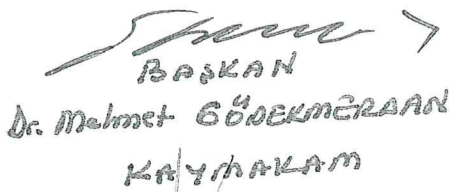 BAŞKAN
Dr. Mehmet GÖDEKMERDAN
KAYMAKAM